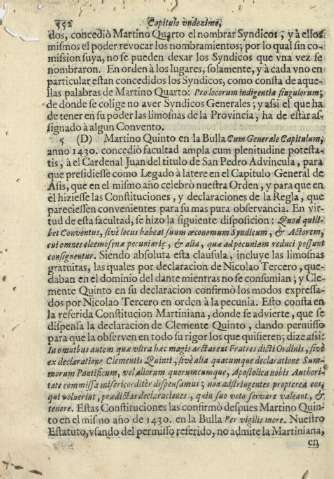 552 Capitulo vndezimo,
dos, concediò Martino Quarto el nombrar Syndicos, y à ellos
mismos el poder revocar los nombramientos; por lo qual sin co-
mission suya, no se pueden dexar los Syndicos que vna vez se
nombraron. En orden à los lugares, solamente, y à cada vno en
particular estan concedidos los Syndicos, como consta de aque-
llas palabras de Martino Quarto: Pro locorum indigentia singulorum;
de donde se colige no aver Syndicos Generales; y assi el que ha
de tener en su poder las limosnas de la Provincia, ha de estar as-
signado à algun Convento.
5 (D) Martino Quinto en la Bulla Cum Generale Capitulum,
anno 1430. concediò facultad ampla cum plenitudine potesta-
tis, à el Cardenal Juan del titulo de San Pedro Advincula, para
que presidiesse como Legado à latere en el Capitulo General de
Asis, que en el mismo año celebrò nuestra Orden, y para que en
èl hiziesse las Constituciones, y declaraciones de la Regla, que
pareciessen convenientes para su mas pura observancia. En vir-
tud de esta facultad, se hizo la siguiente disposicion: Quod quili-
bet Conventus, sivè locus habeat suum œconomum Syndicum, & Actorem,
cui omnes eleemosinæ pecuniariæ, & alia, quæ ad pecuniam reduci possunt
consignentur. Siendo absoluta esta clausula, incluye las limosnas
gratuitas, las quales por declaracion de Nicolao Tercero, que-
daban en el dominio del dante mientras no se consumian; y Cle-
mente Quinto en su declaracion confirmò los modos expressa-
dos por Nicolao Tercero en orden à la pecunia. Esto consta en
la referida Constitucion Martiniana, donde se advierte, que se
dispensa la declaracion de Clemente Quinto, dando permisso
para que la observen en todo su rigor los que quisieren; dize assi:
In omnibus autem quæ ultra hæc magis arctarent Fratres dicti Ordinis, sivè
ex declaratione Clementis Quinti, sivè alia quacumque declaratione Sum-
morum Pontificum, vel aliorum quorumcumque, Apostolica nobis Authori-
tate commissa misericorditèr dispensamus; non adstringentes propterea eos,
qui voluerint, prædictas declarationes, quin suo voto servare valeant, &
tenere. Estas Constituciones las confirmò despues Martino Quin-
to en el mismo año de 1430. en la Bulla Per vigilis more. Nuestro
Estatuto, vsando del permisso referido, no admite la Martiniana,
en